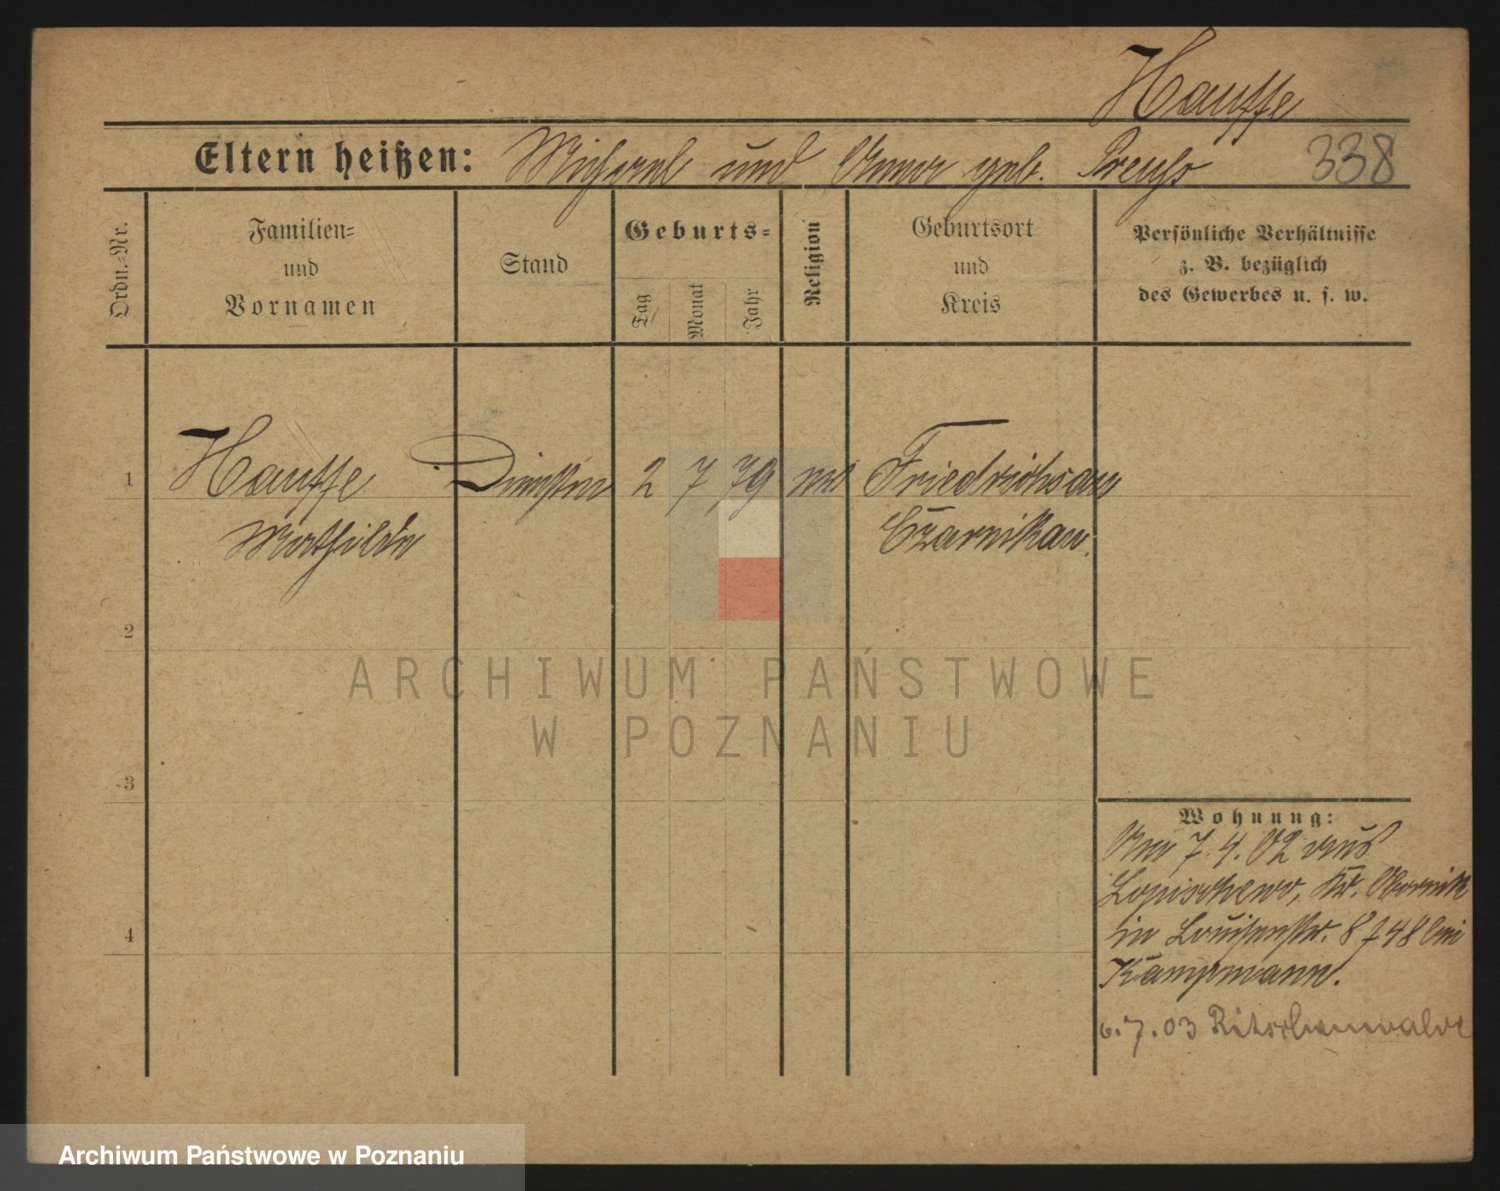 Hauffe
Eltern heißen: Michael und Anna geb. Preuß 338
Ordn.-Nr.
Familien-
und
Vornamen
Stand
Geburts-
Tag
Monat
Jahr
Religion
Geburtsort
und
Kreis
Persönliche Verhältnisse
z. B. bezüglich
des Gewerbes u. s. w.
1 Hauffe 2 7 79 Friedrichsau
Mathilde Czarnikau.
2
ARCHIWUM PAŃSTWOWE
W POZNANIU
3
Wohnung:
7. 4. 02 aus
Lopischewo, Kr. Obornik
in Louisenstr. 8 bei
Kampmann.
4
6.7.03 Ritschenwalde
Archiwum Państwowe w Poznaniu